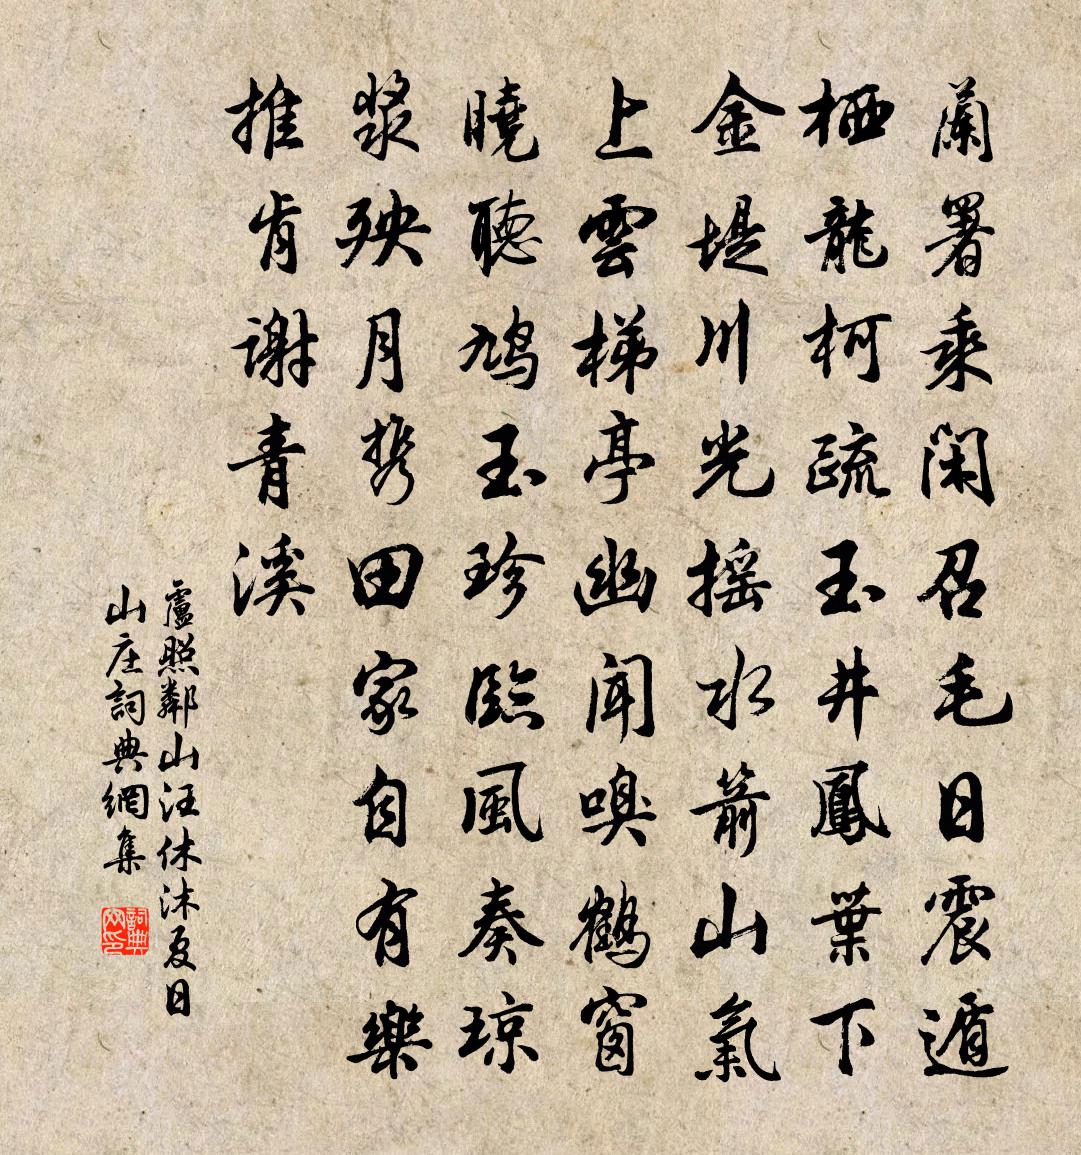 蘭署乘閑召毛日震遁
栖龍柯疏玉井鳳葉下
金堤川光搖水箭山氣
上雲梯亭幽聞嗅鶴窗
曉聽鳩玉珍臨風奏瓊
漿殃月攜田家自有樂
推肯謝青溪
盧照鄰山汪休沐夏日
山庄詞典網集
詞典网印